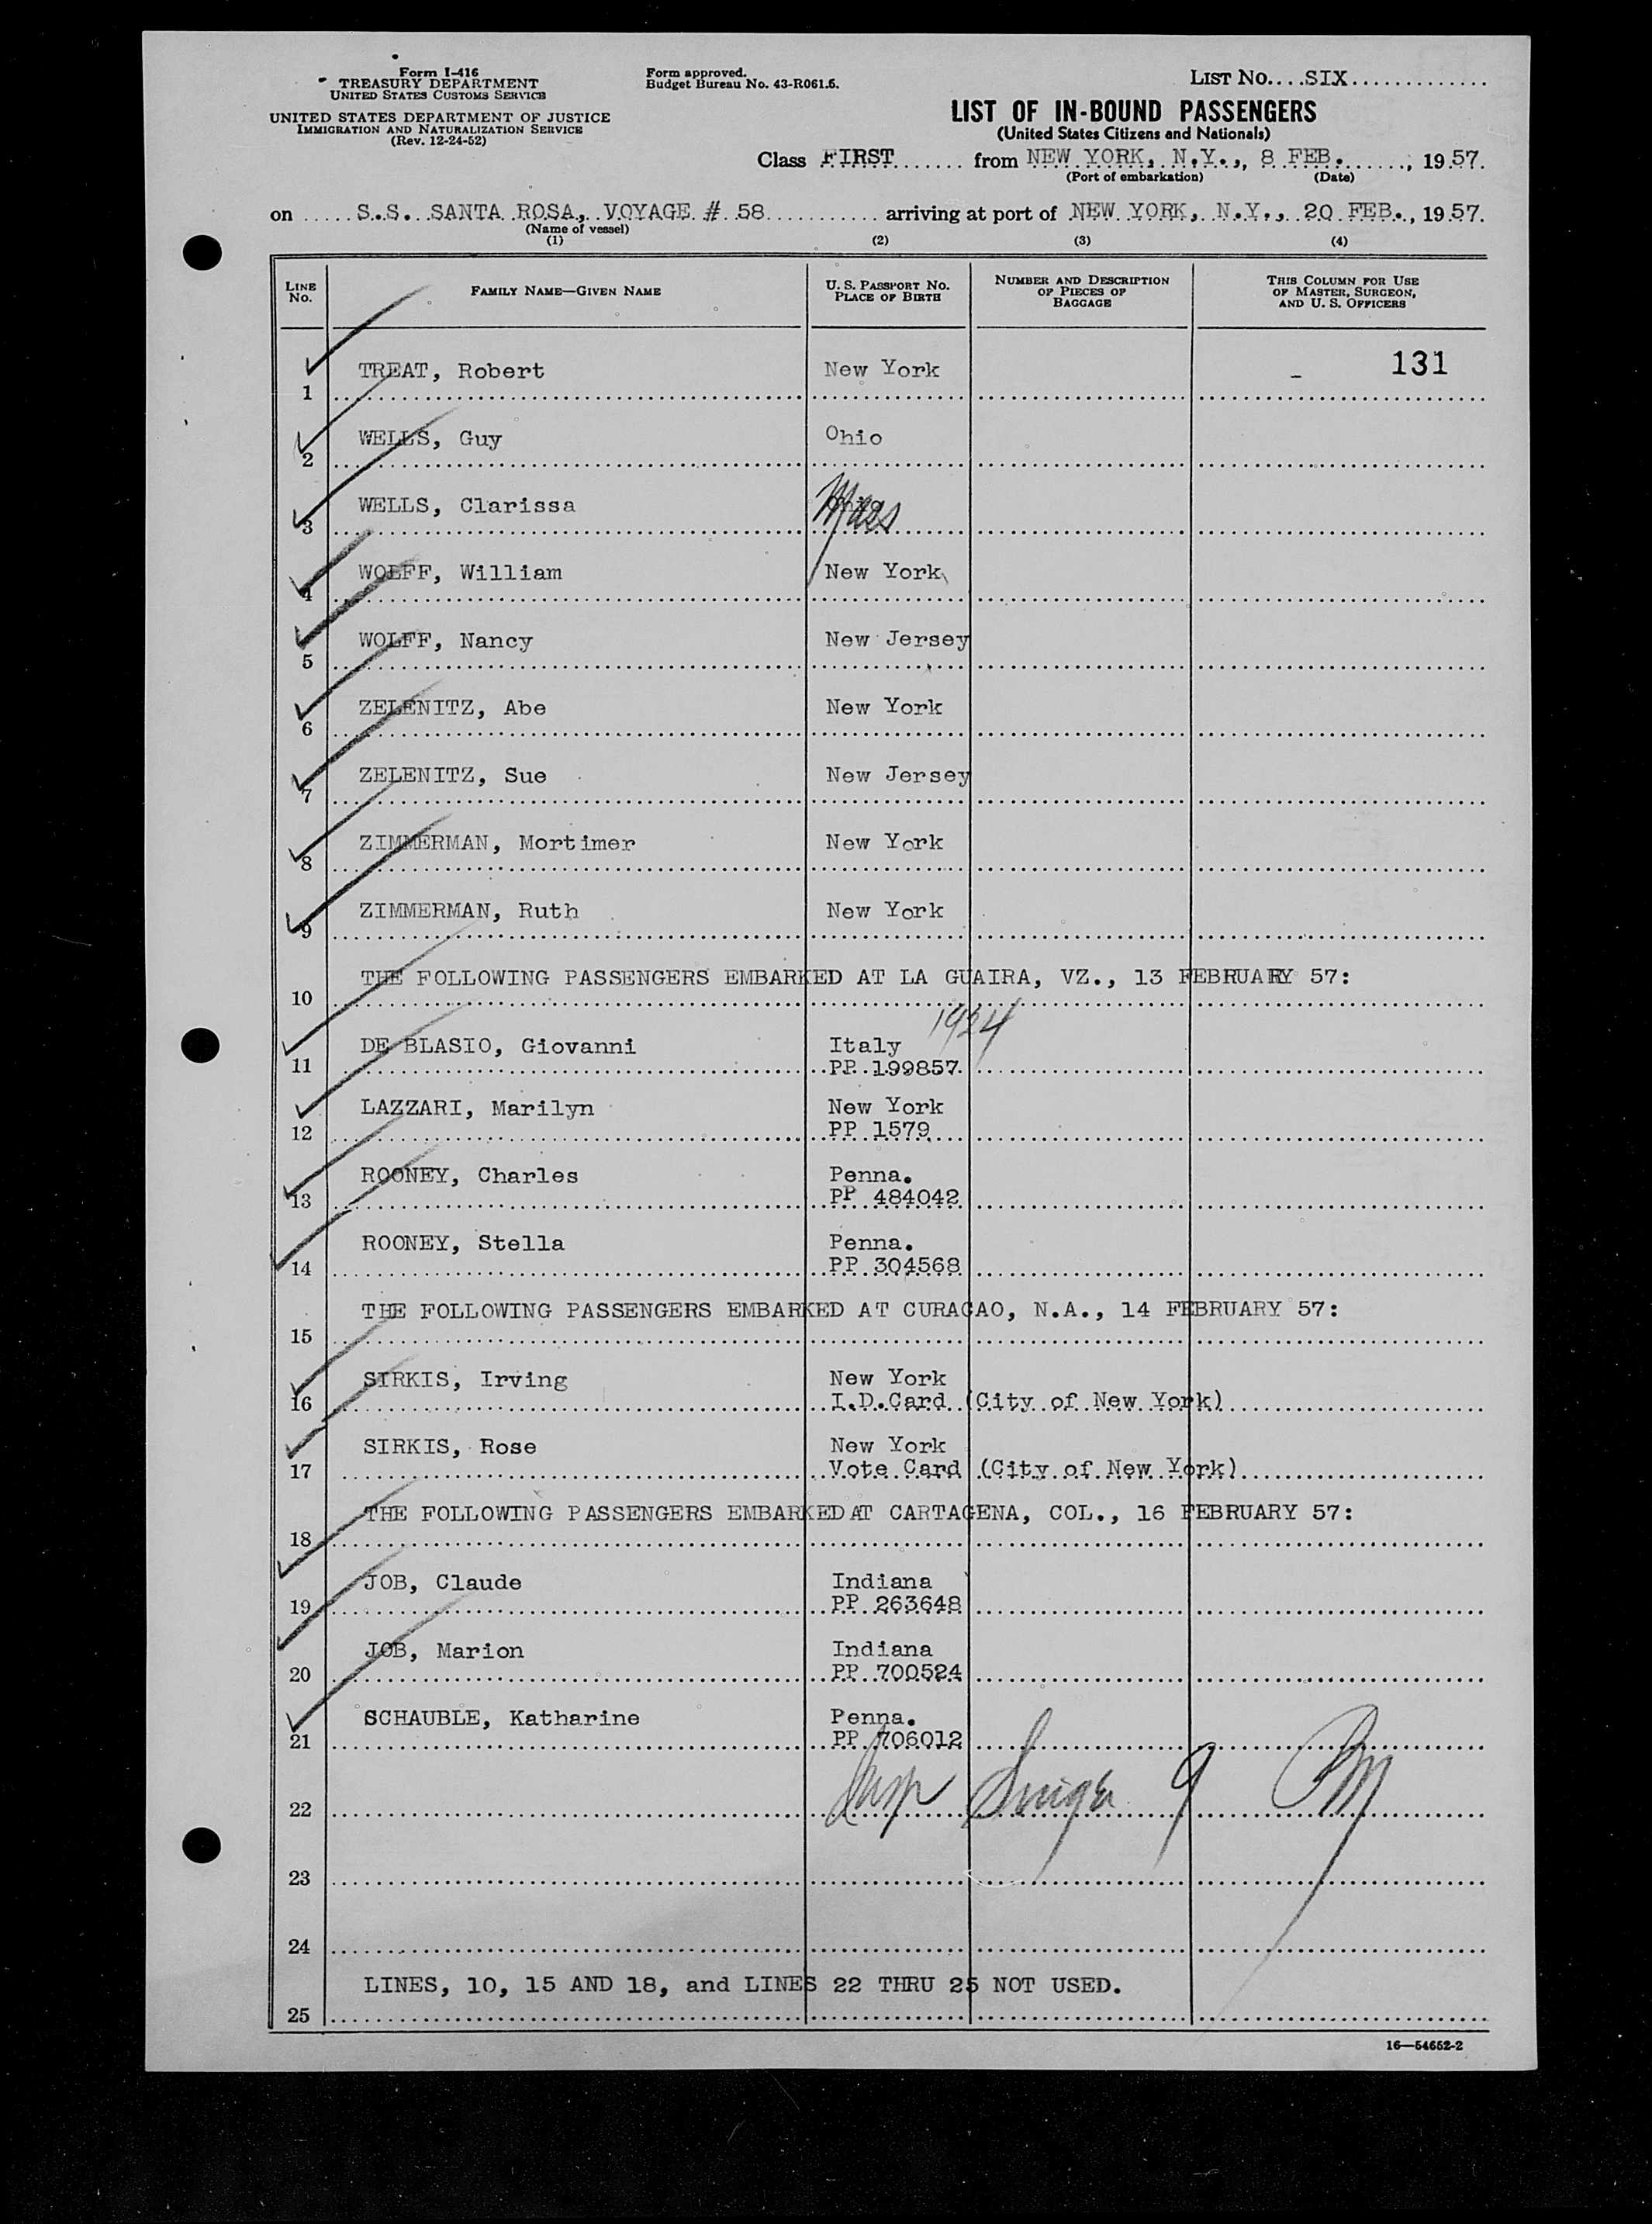 Form I-416
TREASURY DEPARTMENT
UNITED STATES CUSTOMS SERVICE
UNITED STATES DEPARTMENT OF JUSTICE
IMMIGRATION AND NATURALIZATION SERVICE
(Rev. 12-24-52)
Form approved.
Budget Bureau No. 43-R061.5.
LIST NO....SIX.............
LIST OF IN-BOUND PASSENGERS
(United States Citizens and Nationals)
Class FIRST from NEW YORK, N.Y., 8 FEB. , 1957.
(Port of embarkation) (Date)
on S.S. SANTA ROSA, VOYAGE # 58 arriving at port of NEW YORK, N.Y., 20 FEB., 1957.
(Name of vessel)
(1) (2) (3) (4)
LINE NO. FAMILY NAME—GIVEN NAME U. S. PASSPORT NO. PLACE OF BIRTH NUMBER AND DESCRIPTION OF PIECES OF BAGGAGE THIS COLUMN FOR USE OF MASTER, SURGEON, AND U. S. OFFICERS
1 TREAT, Robert New York - 131
2 WELLS, Guy Ohio
3 WELLS, Clarissa Ohio Mass
4 WOLFF, William New York
5 WOLFF, Nancy New Jersey
6 ZELENITZ, Abe New York
7 ZELENITZ, Sue New Jersey
8 ZIMMERMAN, Mortimer New York
9 ZIMMERMAN, Ruth New York
10 THE FOLLOWING PASSENGERS EMBARKED AT LA GUAIRA, VZ., 13 FEBRUARY 57:
11 DE BLASIO, Giovanni Italy 1924
PP 199857
12 LAZZARI, Marilyn New York
PP 1579
13 ROONEY, Charles Penna.
PP 484042
14 ROONEY, Stella Penna.
PP 304568
15 THE FOLLOWING PASSENGERS EMBARKED AT CURACAO, N.A., 14 FEBRUARY 57:
16 SIRKIS, Irving New York
I.D.Card (City of New York)
17 SIRKIS, Rose New York
Vote Card (City of New York)
18 THE FOLLOWING PASSENGERS EMBARKED AT CARTAGENA, COL., 16 FEBRUARY 57:
19 JOB, Claude Indiana
PP 263648
20 JOB, Marion Indiana
PP 700524
21 SCHAUBLE, Katharine Penna.
PP 706012
22
23
24
LINES, 10, 15 AND 18, and LINES 22 THRU 25 NOT USED.
25
16—54652-2